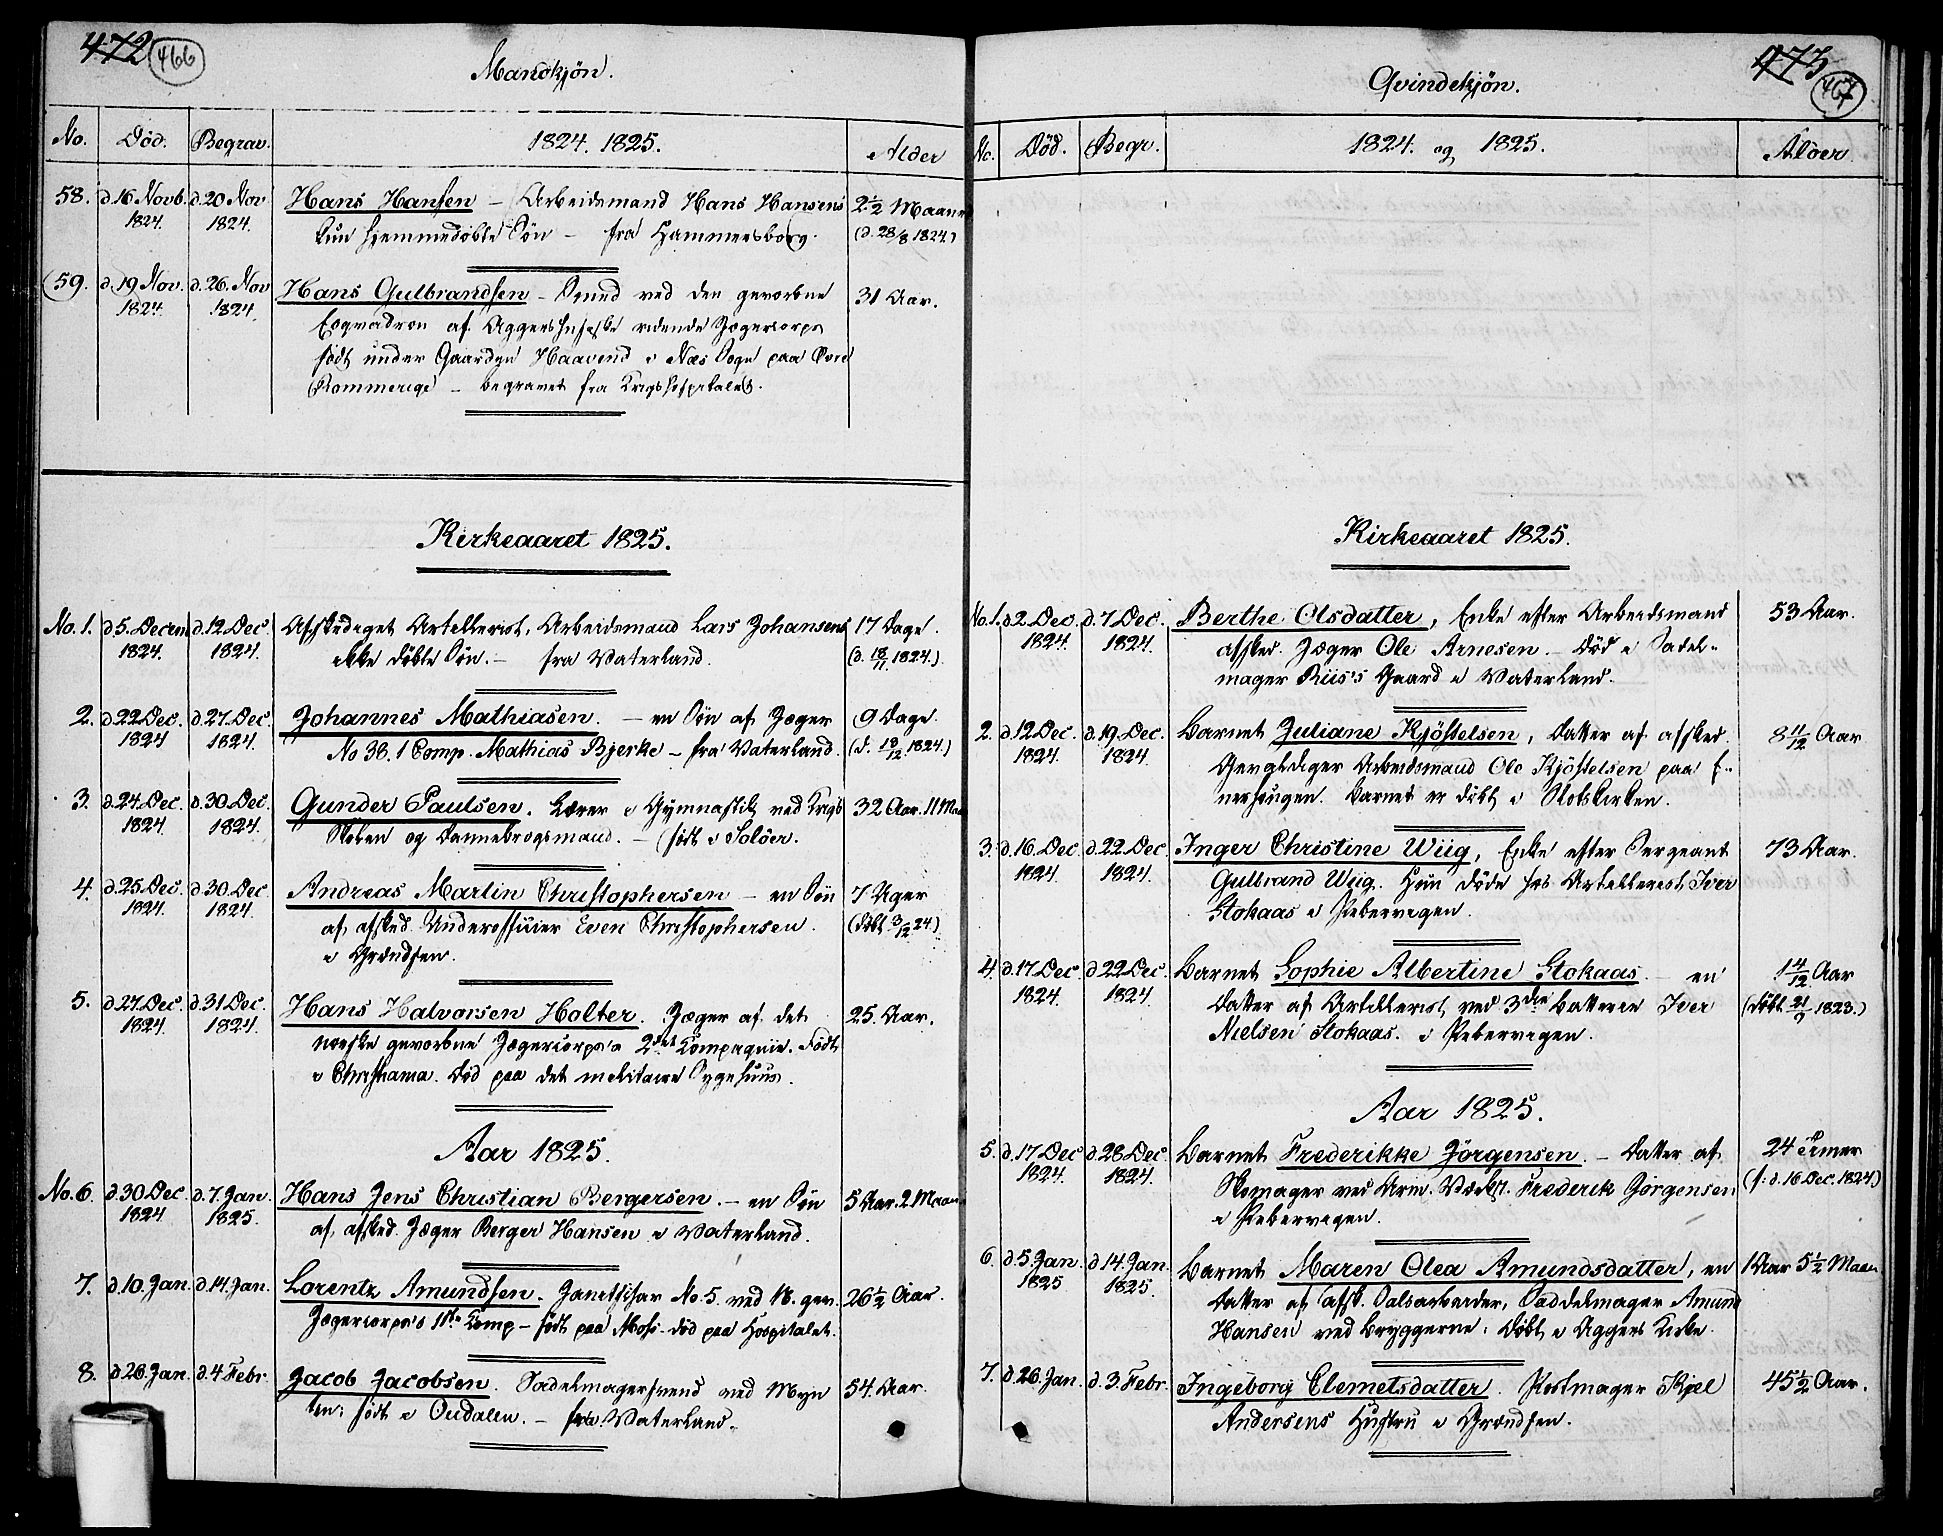 472 466
Mandkjøn.
No. Død. Begrav. 1824. 1825. Alder
58. d. 16 Novb. d. 20 Nov Hans Hansen – Arbeidsmand Hans Hansens 2½ Maaner
1824. 1824. kun hjemmedøbte Søn – fra Hammersborg. (d. 28/8 1824)
59. d. 19 Nov. d. 26. Nov Hans Gulbrandsen – Smed ved den gevorbne 31 Aar.
1824. 1824. Esqvadron af Aggershusiske ridende Jægercorps
født under Gaarden Haavend i Næs Sogn paa Øvre
Rommerige – begravet fra Krigshospitalet.
Kirkeaaret 1825.
No. 1. d 5. Decem d. 12 Dec. Afskediget Artellerist, Arbeidsmand Lars Johansens 17 Dage.
1824. 1824. ikke døbte Søn. – fra Vaterland. (d. 18/11 1824.)
2. d 22 Dec. d. 27. Dec. Johannes Mathiasen. – en Søn af Jæger 9 Dage.
1824 1824. No 38. 1 Comp. Mathias Bjerke – fra Vaterland. (d. 13/12 1824.)
3. d. 24. Dec. d. 30. Dec. Gunder Paulsen. Lærer i Gymnastik ved Krigs 32 Aar. 11 Maa
1824. 1824. Skolen og Dannebrogsmand. – født i Soløer.
4. d. 25. Dec. d. 30. Dec. Andreas Martin Christophersen – en Søn 7 Uger
1824. 1824. af afsked. Underofficier Even Christophersen. (døbt 3/12 24.)
i Grændsen.
5. d. 27. Dec. d 31 Dec. Hans Halvorsen Holter. Jæger af det 25. Aar.
1824. 1824. norske gevorbne Jægercorps's 2det Compagnie. Født
i Christiania. Død paa det militaire Sygehuus.
Aar 1825.
No. 6. d. 30. Dec. d. 7. Jan. Hans Jens Christian Bergersen. – en Søn 5 Aar. 2 Maan
1824 1825. af afsked. Jæger Berger Hansen i Vaterland.
7. d. 10. Jan. d. 14. Jan. Lorentz Amundsen. Janitshar No. 5. ved N. gev. 26½ Aar.
Jægercorps's 1ste Comp – født paa Moss. død paa Hospitalet.
8. d 26. Jan. d. 4 Febr. Jacob Jacobsen. Sadelmagersvend ved Myn 54. Aar.
ten; født i Oudalen. – fra Vaterland.
473 467
Qvindekjøn.
No. Død. Begr. 1824. og 1825. Alder
Kirkeaaret 1825.
No. 1. d. 2. Dec. d. 7. Dec. Berthe Olsdatter, Enke efter Arbeidsmand 53 Aar.
1824. 1824. afsked. Jæger Ole Arnesen. – Død i Sadel-
mager Riis's Gaard i Vaterland.
2. d. 12 Dec. d. 19. Dec. Barnet Juliane Kjøstelsen, datter af afsked. 8 11/12 Aar
1824. 1824. Arbeidsmand Ole Kjøstelsen paa E-
nerhougen. Barnet er døbt i Slotskirken.
3. d. 16. Dec. d. 22. Dec. Inger Christine Wiig, Enke efter Sergeant 73 Aar.
1824. 1824. Gulbrand Wiig. Hun døde hos Artellerist Iver
Stokaas i Pebervigen.
4. d. 17. Dec. d. 22 Dec. Barnet Sophie Albertine Stokaas – en 1 4/12 Aar
1824. 1824. Datter af Artillerist ved 3die Batterie Iver (døbt 21/9 1823.)
Nielsen Stokaas. i Pebervigen.
Aar 1825.
5. d. 17. Dec d. 28 Dec. Barnet Frederikke Jørgensen. – Datter af 24 Timer
1824. 1824. Skomager ved Arm. Værkst. Frederik Jørgensen (f: d. 16 Dec. 1824.)
i Pebervigen.
6. d. 5. Jan. d 14. Jan. Barnet Maren Olea Amundsdatter, en 1 Aar 5½ Maan
1825 1825. Datter af afsk. Saddelmager Amund
Hansen ved Bryggerne. Døbt i Aggers Kirke.
7. d. 26. Jan. d. 3. Febr. Ingeborg Clemetsdatter. Kostmager Kjel 45½ Aar.
Andersens Hustru i Grændsen.